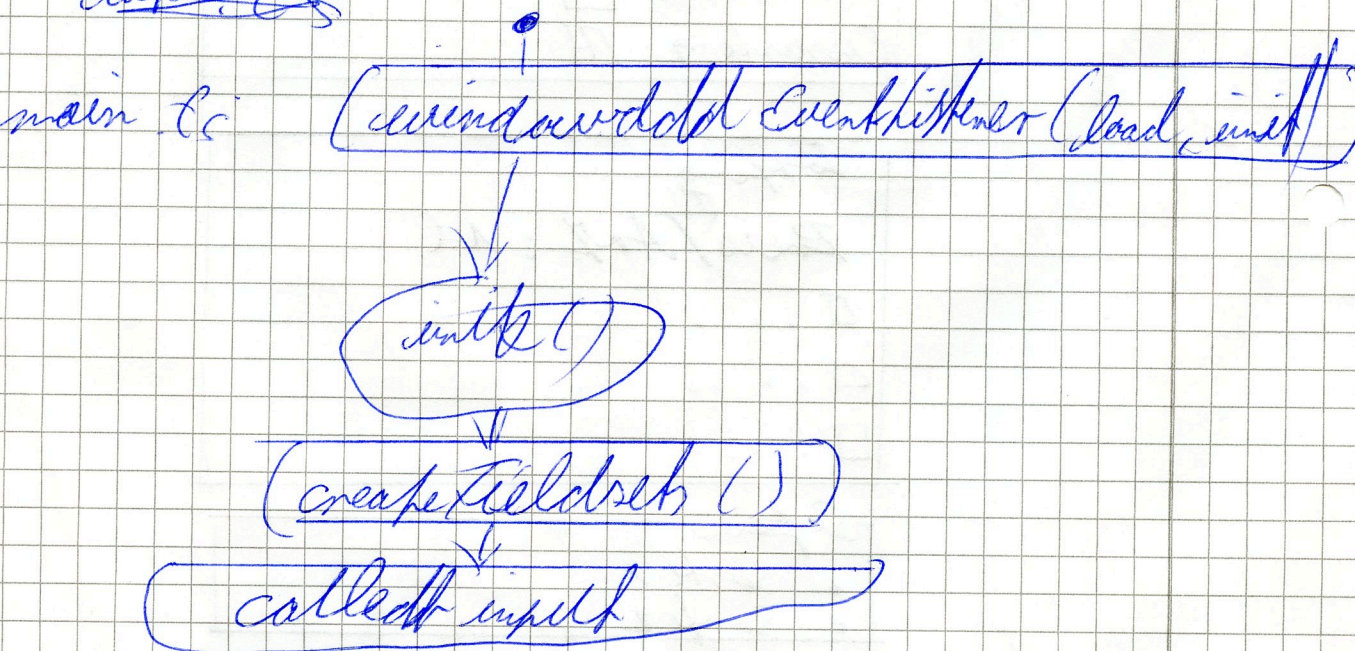 main.ts
window.addEventListener(load, init)
init()
createFieldsets()
collect input